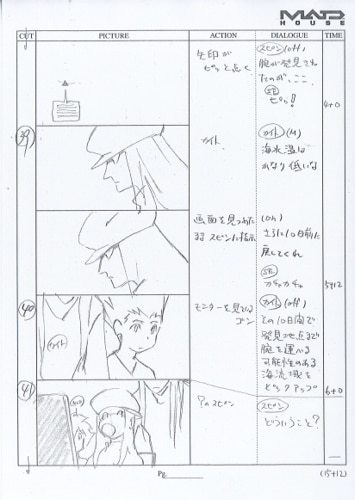 MAD HOUSE
CUT PICTURE ACTION DIALOGUE TIME
矢印が
ピッと点く
スピン(off)
腕が発見され
たのが、ここ
SE
ピッ!
4+0
39
カイト
カイト(M)
海水温は
かなり低いな
画面を見つめた
まま スピンに指示
(on)
さらに10日前に
戻してくれ
SE
カチャカチャ
5+12
40
カイト
モニターを見ている
ゴン
カイト(off)
その10日間で
発見地点まで
腕を運べる
可能性のある
海流域を
ピックアップ
6+0
41
?のスピン
スピン
どういうこと?
Pg.
(15+12)